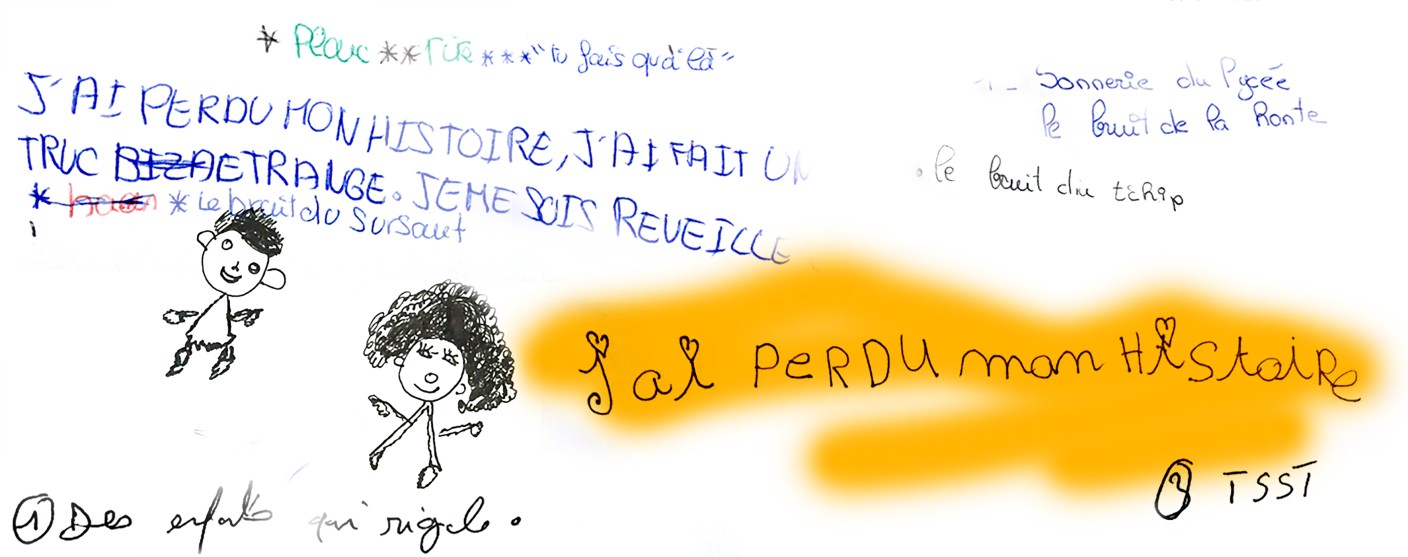 * Pleuc ** rire *** "tu fais qu'à là"
J'AI PERDU MON HISTOIRE, J'AI FAIT UN
TRUC BIZAETRANGE. JE ME SUIS REVEILLE
* * le bruit du sursaut
1 - Sonnerie du lycée
le bruit de la Honte
. le bruit du tchip
j'ai PERDU mon HIStoiRe
① Des enfants qui rigole.
② TSST